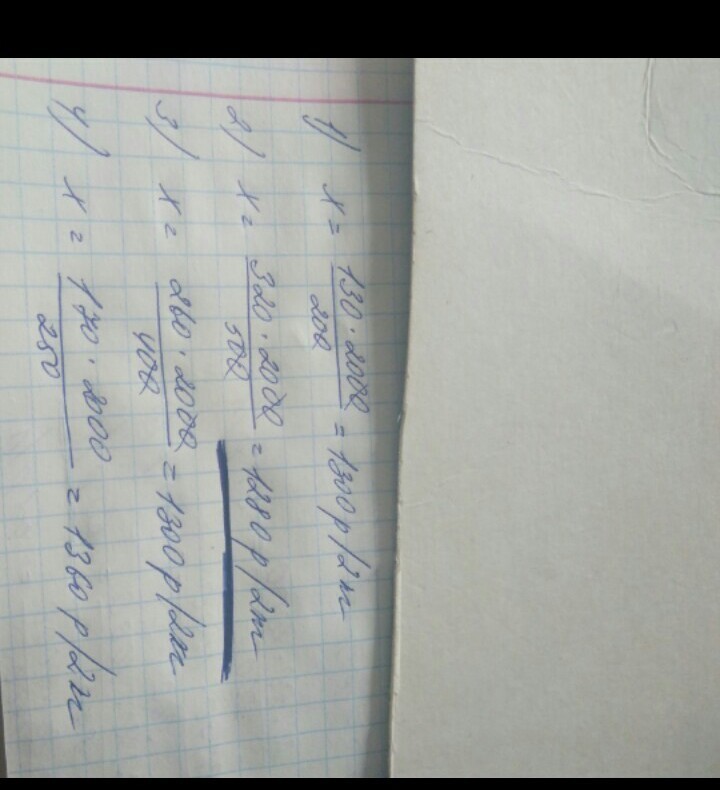 1) x = 130 · 2000 / 200 = 1300 р/2
2) x = 320 · 2000 / 500 = 1280 р/2
3) x = 260 · 2000 / 400 = 1300 р/2
4) x = 170 · 2000 / 250 = 1360 р/2